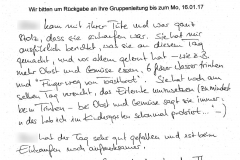 Wir bitten um Rückgabe an Ihre Gruppenleitung bis zum Mo, 16.01.17
kam mit ihrer Tüte und war ganz
stolz, dass sie schaufen war. Sie hat mir
ausführlich berichtet, was sie an diesem Tag
gemacht, und vor allem gelernt hat – z.B.
mehr Obst und Gemüse essen, 6 Gläser Wasser trinken
und "Finger weg von". Sie hat noch am
selben Tag versucht, das Erlernte umzusetzen (
beim Trinken – bei Obst und Gemüse sagt sie immer,
das hab ich im Kindergarten schonmal probiert...").
hat der Tag sehr gut gefallen und ist beim
Einkaufen noch aufmerksamer.